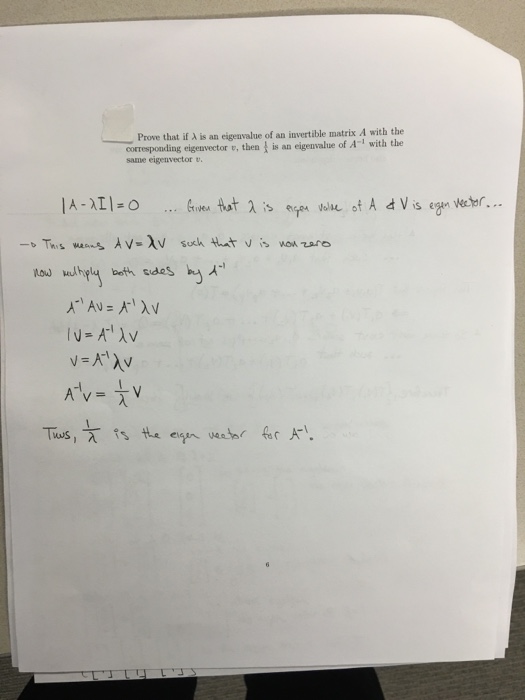 Prove that if λ is an eigenvalue of an invertible matrix A with the
corresponding eigenvector v, then 1/λ is an eigenvalue of A⁻¹ with the
same eigenvector v.
|A-λI|=0 ... Given that λ is eigen value of A & V is eigen vector...
→ This means AV=λV such that v is non zero
now multiply both sides by A⁻¹
A⁻¹AV=A⁻¹λV
IV=A⁻¹λV
V=A⁻¹λV
A⁻¹V=1/λ V
Thus, 1/λ is the eigen vector for A⁻¹.